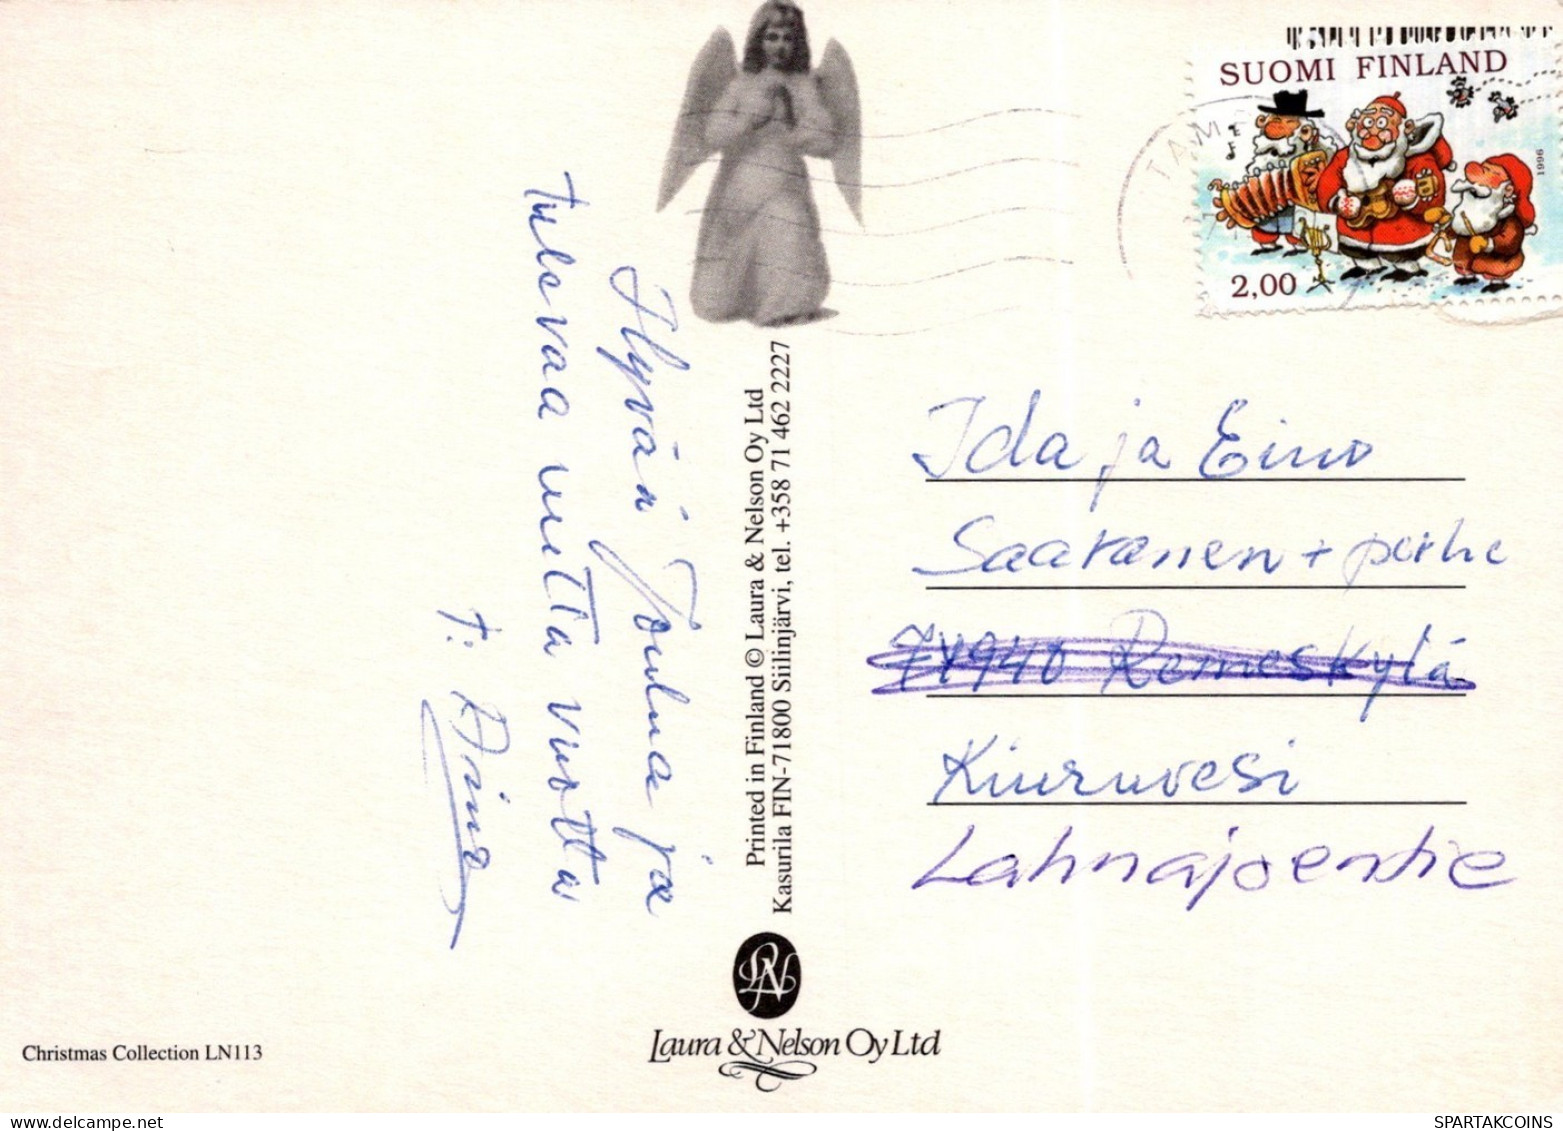 SUOMI FINLAND
1996
2,00
TAM
Hyvää Joulua ja
tulevaa uutta vuotta
T: Aino
Printed in Finland © Laura & Nelson Oy Ltd
Kasurila FIN-71800 Siilinjärvi, tel. +358 71 462 2227
Ida ja Eino
Saaranen + perhe
74940 Remeskylä
Kiuruvesi
Lahnajoentie
LN
Laura & Nelson Oy Ltd
Christmas Collection LN113
SPARTAKCOINS